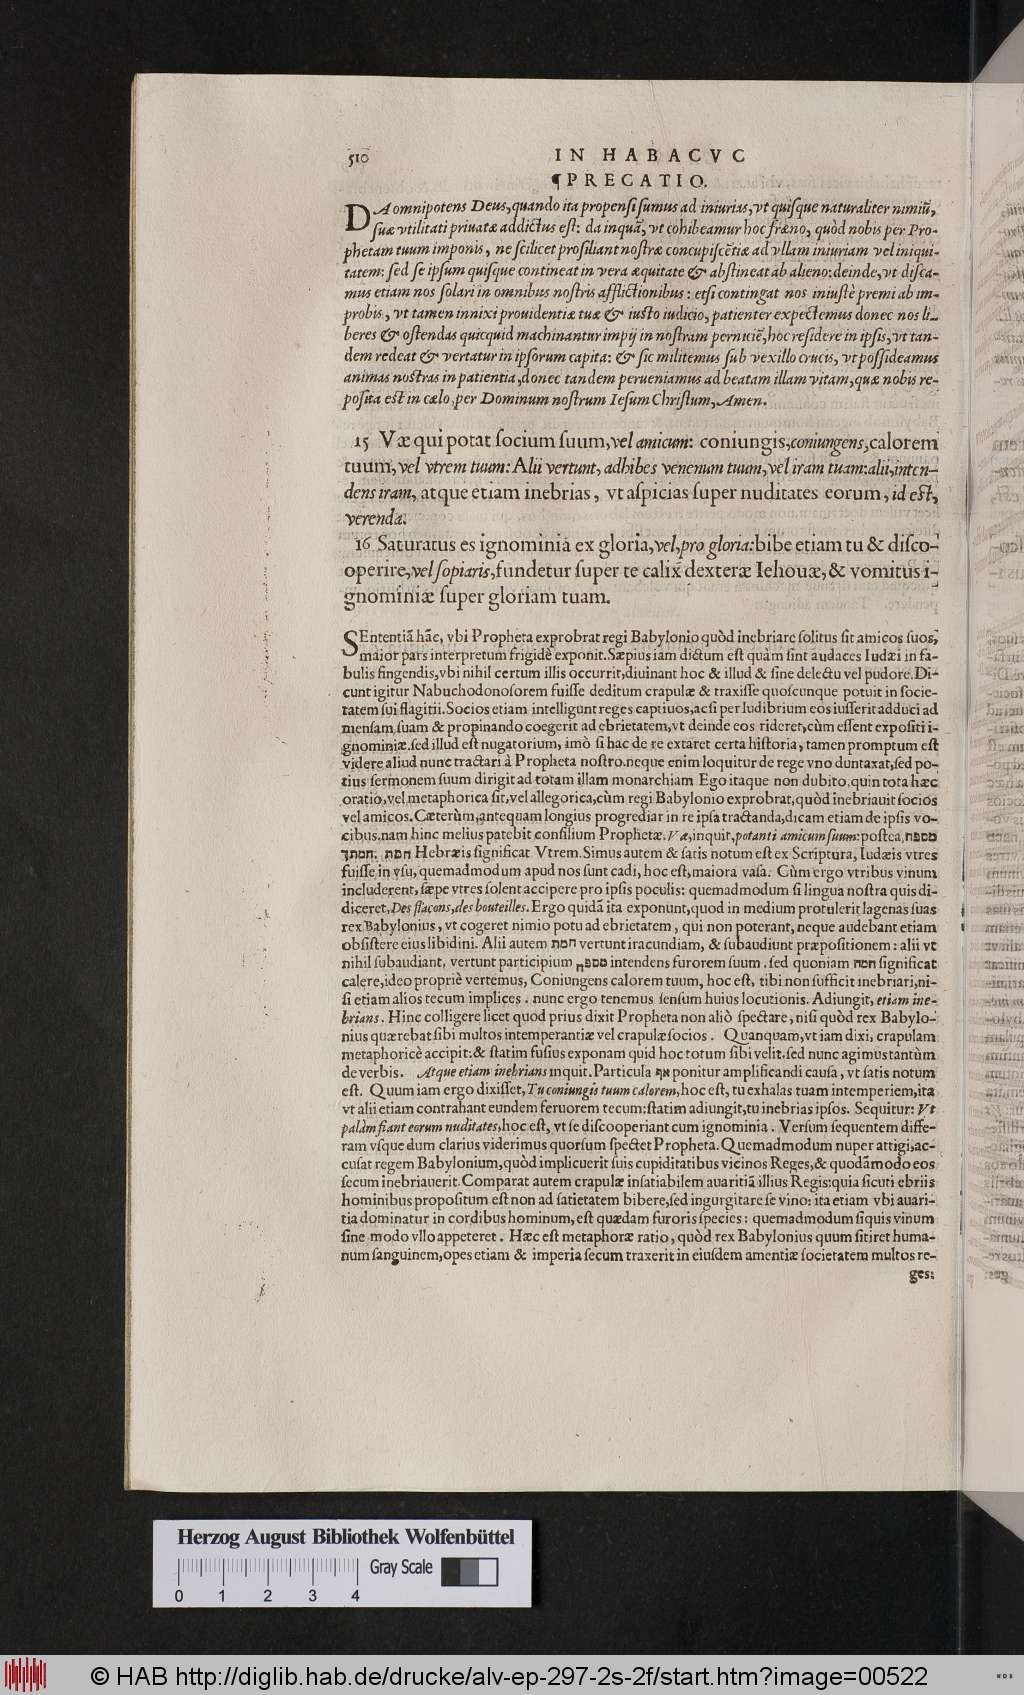 510
IN HABACVC
¶PRECATIO.
DA omnipotens Deus, quando ita propensi sumus ad iniurias, vt quisque naturaliter nimiũ,
suæ vtilitati priuatæ addictus est: da inquã, vt cohibeamur hoc fræno, quòd nobis per Pro-
phetam tuum imponis, ne scilicet prosiliant nostræ concupiscẽtiæ ad vllam iniuriam vel iniqui-
tatem: sed se ipsum quisque contineat in vera æquitate & abstineat ab alieno: deinde, vt disca-
mus etiam nos solari in omnibus nostris afflictionibus: etsi contingat nos iniustè premi ab im-
probis, vt tamen innixi prouidentiæ tuæ & iusto iudicio, patienter expectemus donec nos li-
beres & ostendas quicquid machinantur impij in nostram perniciẽ, hoc residere in ipsis, vt tan-
dem redeat & vertatur in ipsorum capita: & sic militemus sub vexillo crucis, vt possideamus
animas nostras in patientia, donec tandem perueniamus ad beatam illam vitam, quæ nobis re-
posita est in cælo, per Dominum nostrum Iesum Christum, Amen.
15 Væ qui potat socium suum, vel amicum: coniungis, coniungens, calorem
tuum, vel vtrem tuum: Alii vertunt, adhibes venenum tuum, vel iram tuam: alii, inten-
dens iram, atque etiam inebrias, vt aspicias super nuditates eorum, id est,
verenda.
16 Saturatus es ignominia ex gloria, vel, pro gloria: bibe etiam tu & disco-
operire, vel sopiaris, fundetur super te calix dexteræ Iehouæ, & vomitus i-
gnominiæ super gloriam tuam.
SEntentiã hãc, vbi Propheta exprobrat regi Babylonio quòd inebriare solitus sit amicos suos,
maior pars interpretum frigidè exponit. Sæpius iam dictum est quàm sint audaces Iudæi in fa-
bulis fingendis, vbi nihil certum illis occurrit, diuinant hoc & illud & sine delectu vel pudore. Di-
cunt igitur Nabuchodonosorem fuisse deditum crapulæ & traxisse quoscunque potuit in socie-
tatem sui flagitii. Socios etiam intelligunt reges captiuos, acsi per ludibrium eos iusserit adduci ad
mensam suam & propinando coegerit ad ebrietatem, vt deinde eos rideret, cùm essent expositi i-
gnominiæ. sed illud est nugatorium, imò si hac de re extaret certa historia, tamen promptum est
videre aliud nunc tractari à Propheta nostro. neque enim loquitur de rege vno duntaxat, sed po-
tius sermonem suum dirigit ad totam illam monarchiam Ego itaque non dubito, quin tota hæc
oratio, vel metaphorica sit, vel allegorica, cùm regi Babylonio exprobrat, quòd inebriauit socios
vel amicos. Cæterùm, antequam longius progrediar in re ipsa tractanda, dicam etiam de ipsis vo-
cibus. nam hinc melius patebit consilium Prophetæ. Væ, inquit, potanti amicum suum: postea, מספח
חמתך. חמת Hebræis significat Vtrem. Simus autem & satis notum est ex Scriptura, Iudæis vtres
fuisse in vsu, quemadmodum apud nos sunt cadi, hoc est, maiora vasa. Cùm ergo vtribus vinum
includerent, sæpe vtres solent accipere pro ipsis poculis: quemadmodum si lingua nostra quis di-
diceret, Des flacons, des bouteilles. Ergo quidã ita exponunt, quod in medium protulerit lagenas suas
rex Babylonius, vt cogeret nimio potu ad ebrietatem, qui non poterant, neque audebant etiam
obsistere eius libidini. Alii autem חמת vertunt iracundiam, & subaudiunt præpositionem: alii vt
nihil subaudiant, vertunt participium מספח intendens furorem suum. sed quoniam חמה significat
calere, ideo propriè vertemus, Coniungens calorem tuum, hoc est, tibi non sufficit inebriari, ni-
si etiam alios tecum implices. nunc ergo tenemus sensum huius locutionis. Adiungit, etiam ine-
brians. Hinc colligere licet quod prius dixit Propheta non aliò spectare, nisi quòd rex Babylo-
nius quærebat sibi multos intemperantiæ vel crapulæ socios. Quanquam, vt iam dixi, crapulam
metaphoricè accipit: & statim fusius exponam quid hoc totum sibi velit. sed nunc agimus tantùm
de verbis. Atque etiam inebrians inquit. Particula אף ponitur amplificandi causa, vt satis notum
est. Quum iam ergo dixisset, Tu coniungis tuum calorem, hoc est, tu exhalas tuam intemperiem, ita
vt alii etiam contrahant eundem feruorem tecum: statim adiungit, tu inebrias ipsos. Sequitur: Vt
palàm fiant eorum nuditates, hoc est, vt se discooperiant cum ignominia. Versum sequentem diffe-
ram vsque dum clarius viderimus quorsum spectet Propheta. Quemadmodum nuper attigi, ac-
cusat regem Babylonium, quòd implicuerit suis cupiditatibus vicinos Reges, & quodãmodo eos
secum inebriauerit. Comparat autem crapulæ insatiabilem auaritiã illius Regis: quia sicuti ebriis
hominibus propositum est non ad satietatem bibere, sed ingurgitare se vino: ita etiam vbi auari-
tia dominatur in cordibus hominum, est quædam furoris species: quemadmodum siquis vinum
sine modo vllo appeteret. Hæc est metaphoræ ratio, quòd rex Babylonius quum sitiret huma-
num sanguinem, opes etiam & imperia secum traxerit in eiusdem amentiæ societatem multos re-
ges:
Herzog August Bibliothek Wolfenbüttel
Gray Scale
0 1 2 3 4
© HAB http://diglib.hab.de/drucke/alv-ep-297-2s-2f/start.htm?image=00522